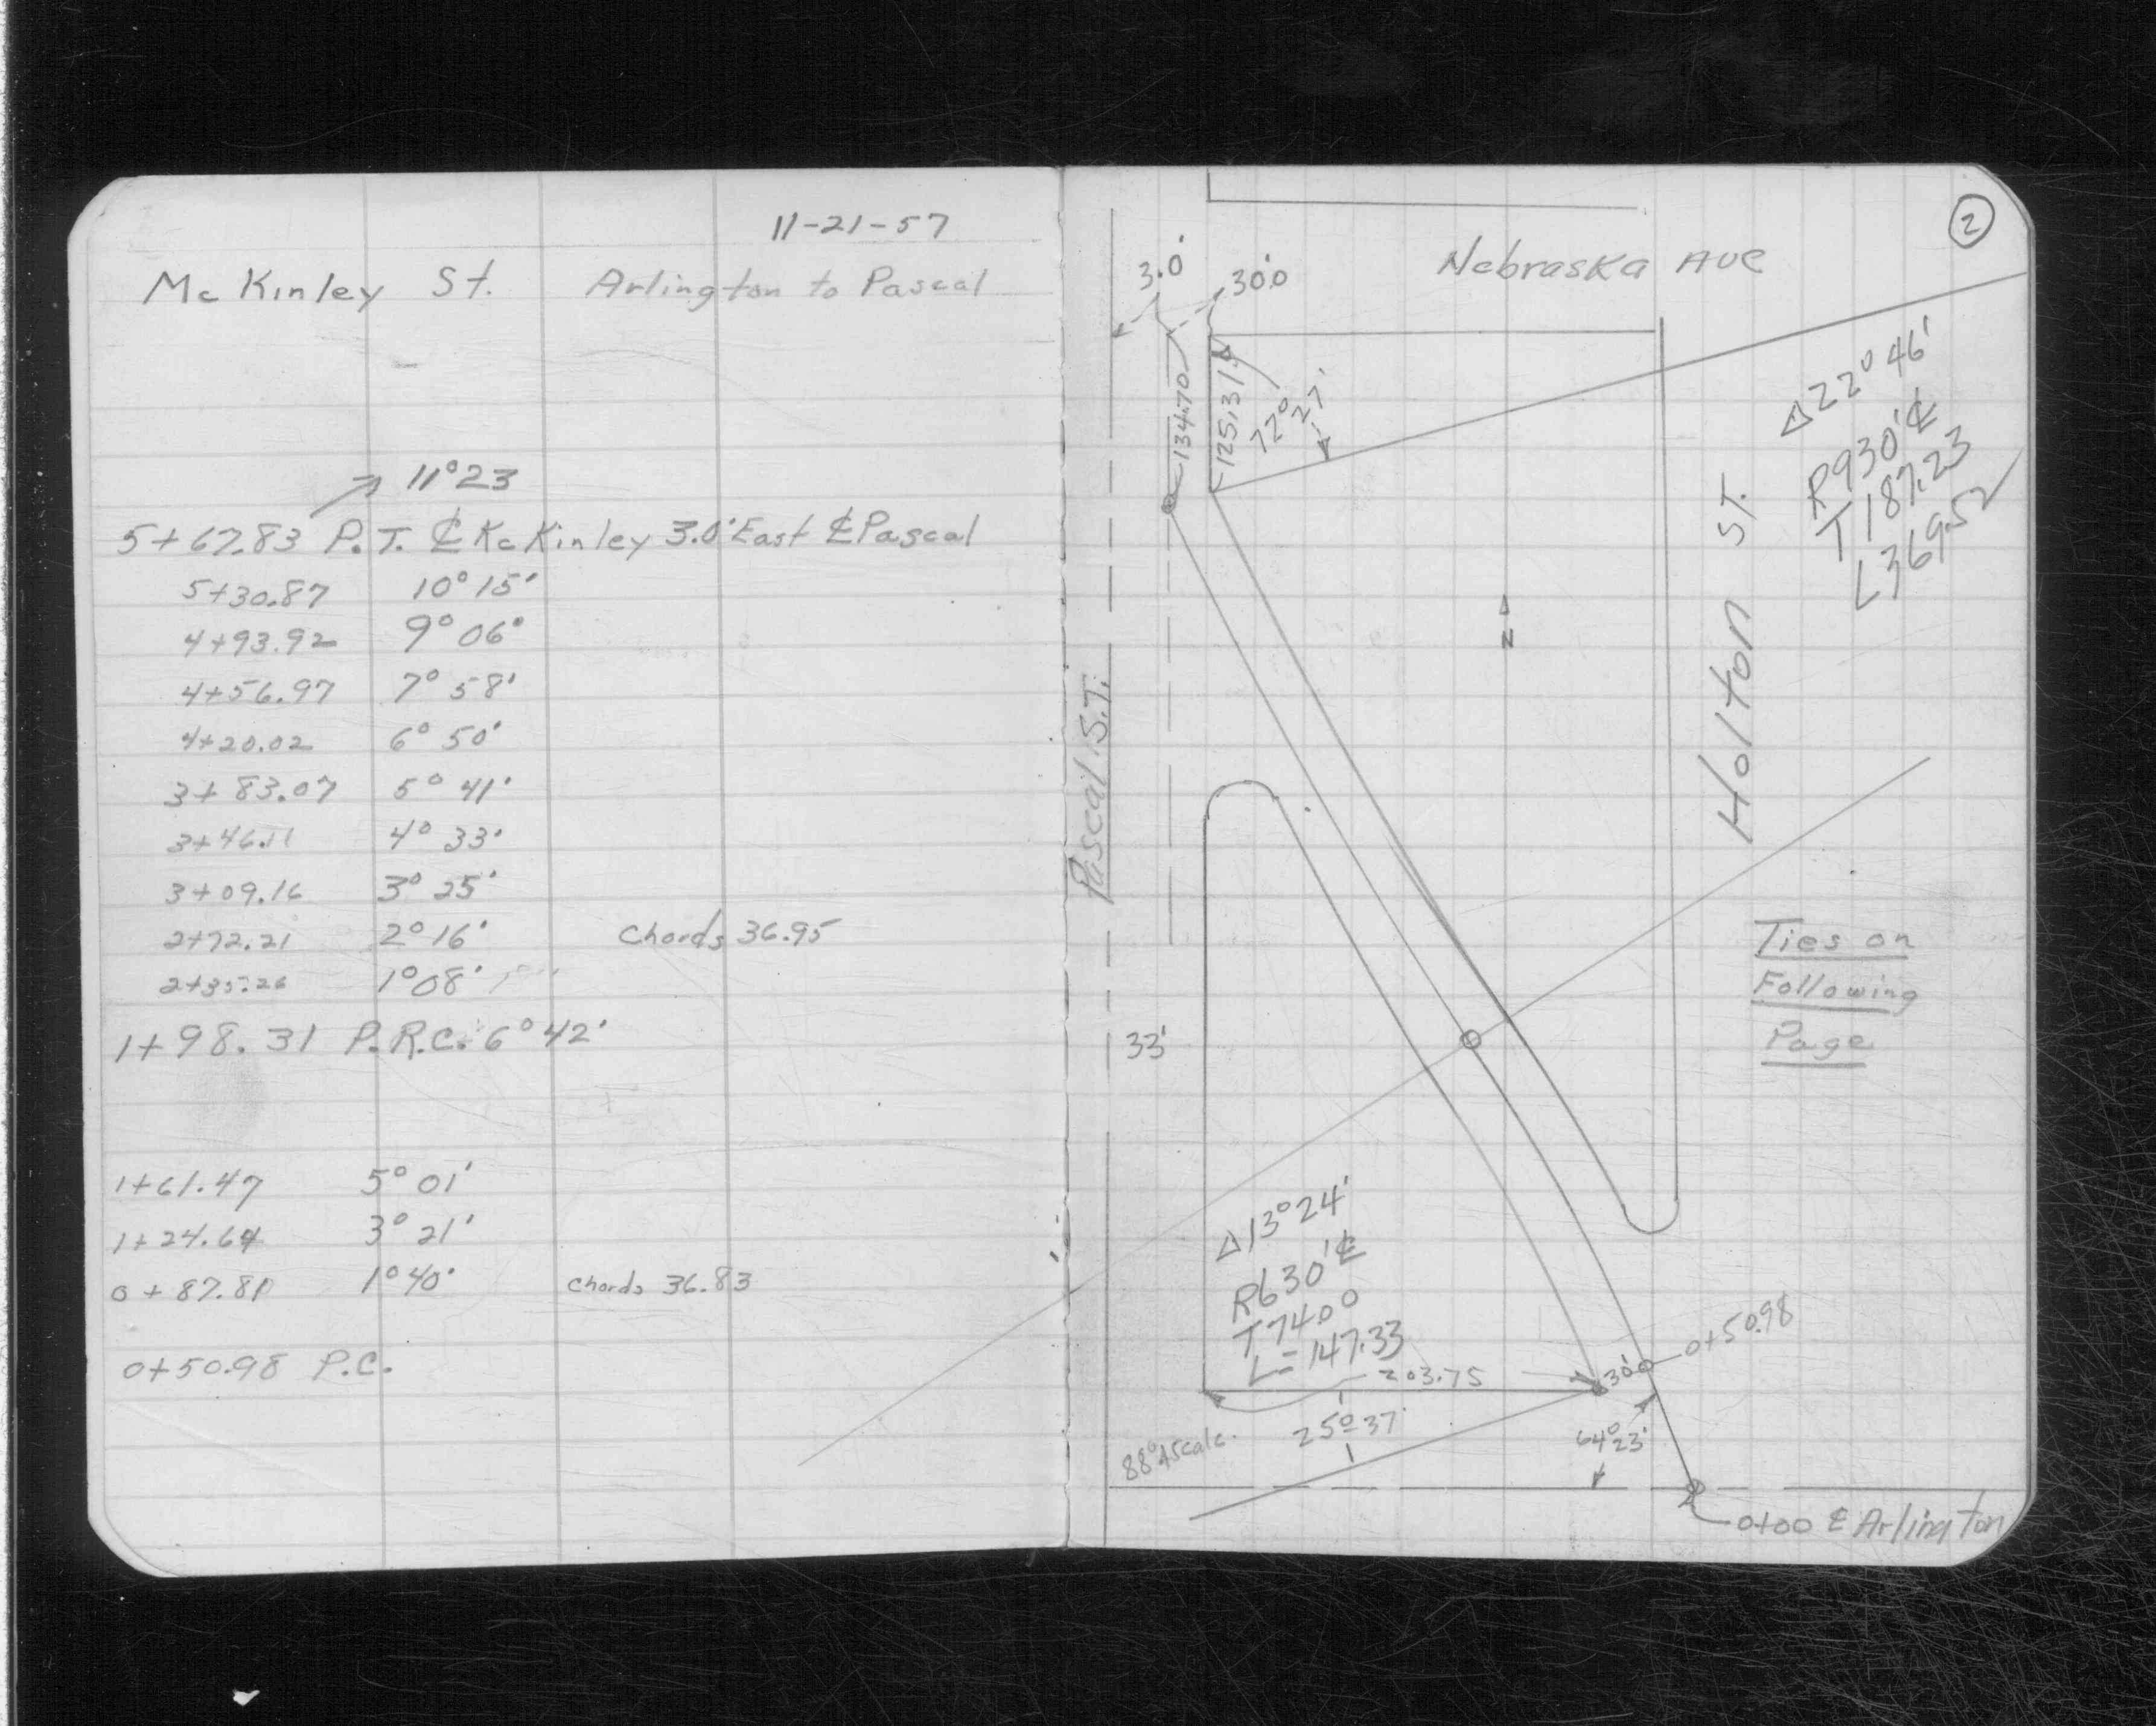 11-21-57
McKinley St. Arlington to Pascal
11°23
5+67.83 P.T. ℄ McKinley 3.0' East ℄ Pascal
5+30.87 10° 15'
4+93.92 9° 06'
4+56.97 7° 58'
4+20.02 6° 50'
3+83.07 5° 41'
3+46.11 4° 33'
3+09.16 3° 25'
2+72.21 2° 16' Chords 36.95
2+35.26 1° 08'
1+98.31 P.R.C. 6° 42'
1+61.47 5° 01'
1+24.64 3° 21'
0+87.81 1° 40' chords 36.83
0+50.98 P.C.
2
Nebraska Ave
3.0'
30.0'
134.70
125.31
72° 27'
△ 22° 46'
R 930' ℄
T 187.23
L 369.52
Holton St.
N
Pascal St.
Ties on
Following
Page
33'
△ 13° 24'
R 630' ℄
T 74.00
L = 147.33
203.75
30'
0+50.98
25° 37'
64° 23'
88° 45 calc.
0+00 ℄ Arlington